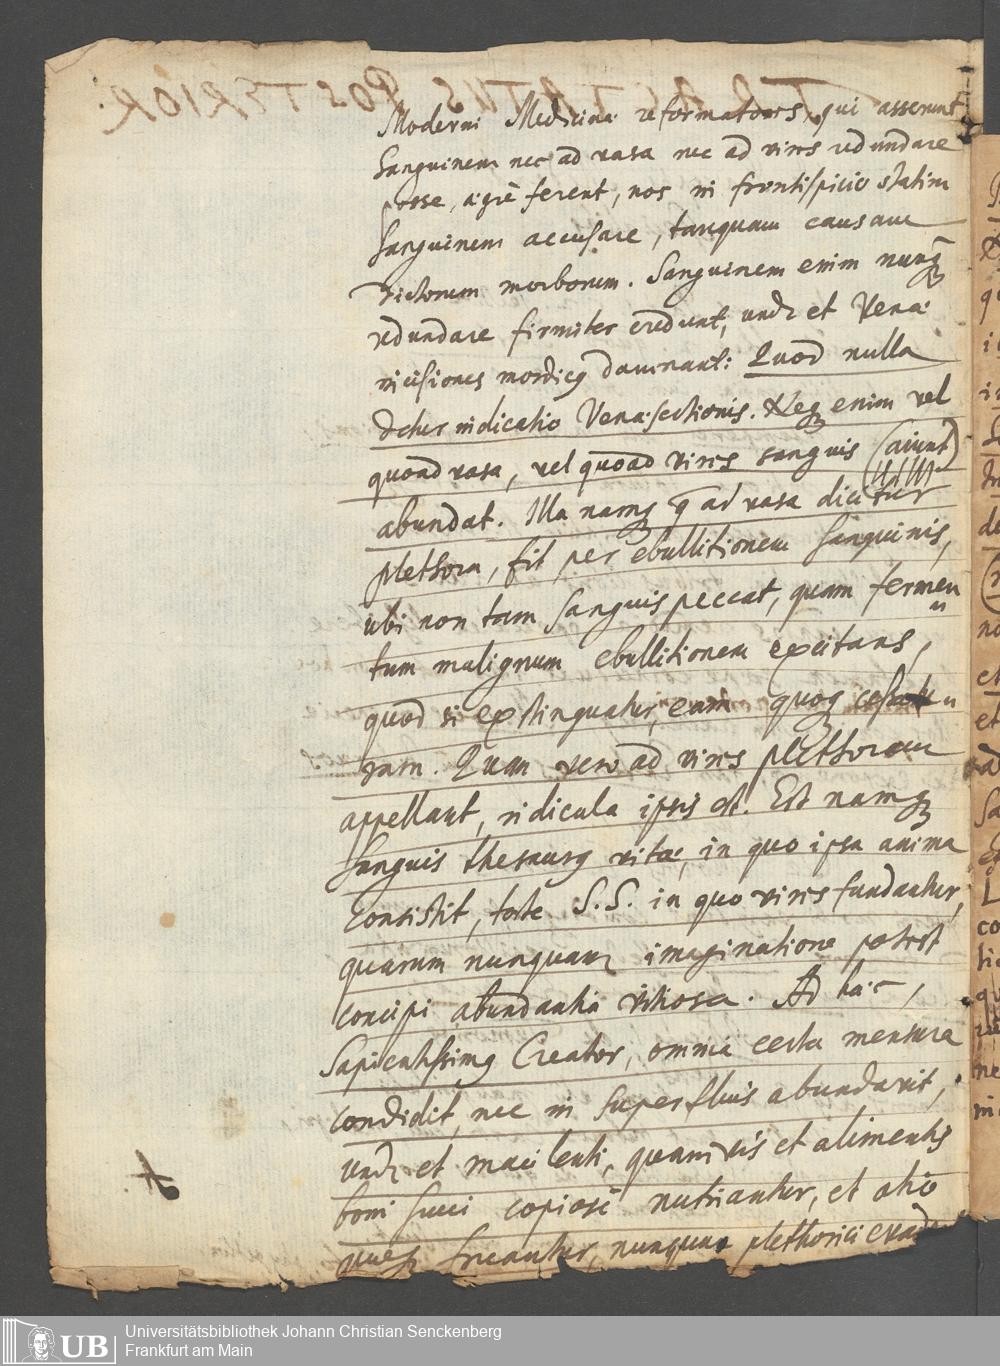 Moderni Medicinæ reformatores, qui asserunt
Sanguinem nec ad vasa nec ad vires redundare
posse, ægrè ferent, nos in frontispicio statim
Sanguinem accusare, tanquam causam
dictorum morborum. Sanguinem enim nunqꝫ
redundare firmiter credunt, unde et Venæ
incisiones mordicꝰ damnant: Quod nulla
detur indicatio Venæsectionis. Neqꝫ enim vel
quoad vasa, vel quoad vires sanguis (aiunt)
abundat. Illa namqꝫ q̄ ad vasa dicitur
plethora, fit per ebullitionem sanguinis,
ubi non tam sanguis peccat, quam fermen
tum malignum ebullitionem excitans,
quod si extinguatur, eam quoqꝫ
ram. Quam vero ad vires plethoram
appellant, ridicula ipsis est. Est namqꝫ
sanguis thesaurꝰ vitæ, in quo ipsa anima
consistit, teste S.S. in quo vires fundantur,
quarum nunquam imaginatione potest
concipi abundantia vitiosa. Ad hæc,
Sapientissimꝰ Creator, omnia certa mensura
condidit, nec in superfluis abundavit,
unde et macilenti, quamvis et alimentis
boni succi copiosè nutriantur, et otio
fruantur, nunquam plethorici
TRACTATUS POSTERIOR.
UB
Universitätsbibliothek Johann Christian Senckenberg
Frankfurt am Main